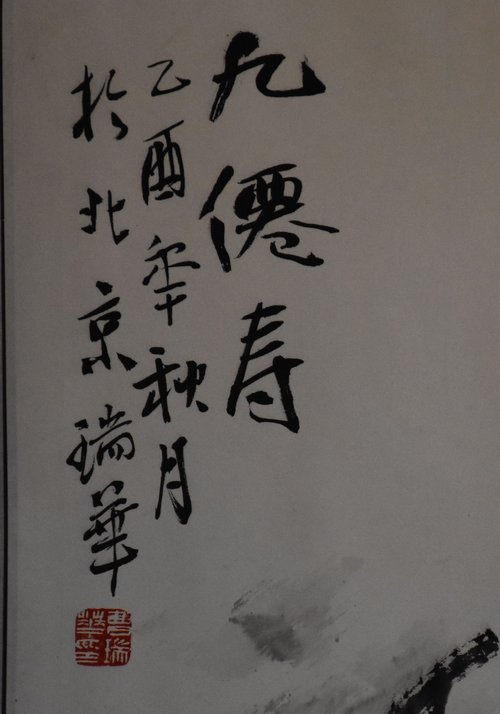 九僊寿
乙酉年秋月
於北京瑞華
曹瑞華印